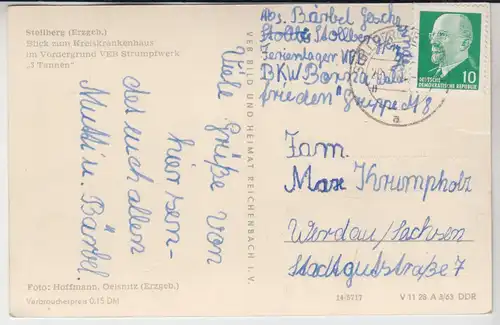 Stollberg (Erzgeb.)
Blick zum Kreiskrankenhaus
im Vordergrund VEB Strumpfwerk
„3 Tannen“
Viele Grüße von
hier sen-
det euch allen
Mutti u. Bärbel.
Foto: Hoffmann, Oelsnitz (Erzgeb.)
Verbraucherpreis 0,15 DM
VEB BILD UND HEIMAT REICHENBACH i. V.
Abs. Bärbel
Stollberg
Ferienlager VEB
BKW Borna „Wald-
frieden“ Gruppe M8
DEUTSCHE
DEMOKRATISCHE REPUBLIK
10
a
Fam.
Max Krumpholz
Werdau/Sachsen
Stadtgutstraße 7
V 11 28 A 3/63 DDR